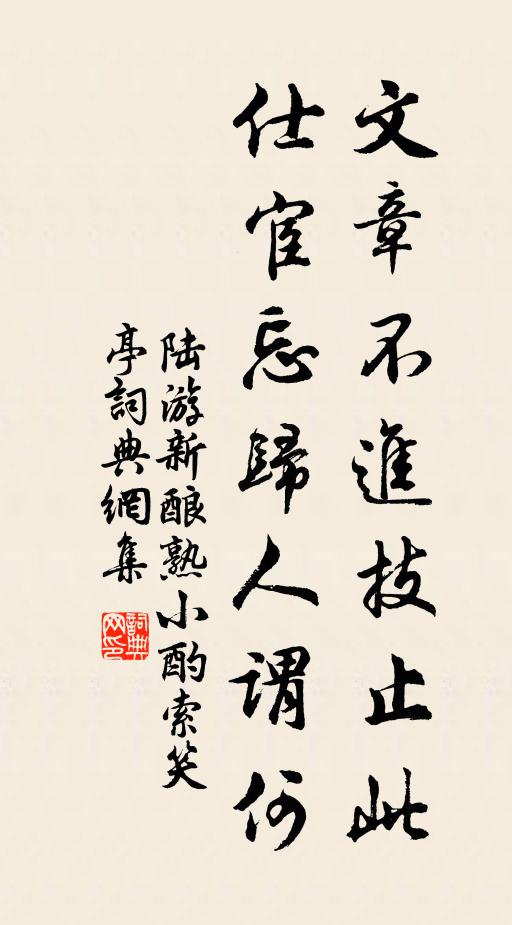 文章不進技止此
仕宦忘歸人謂何
陆游新酿熟小酌索笑
亭詞典網集
詞典
网印